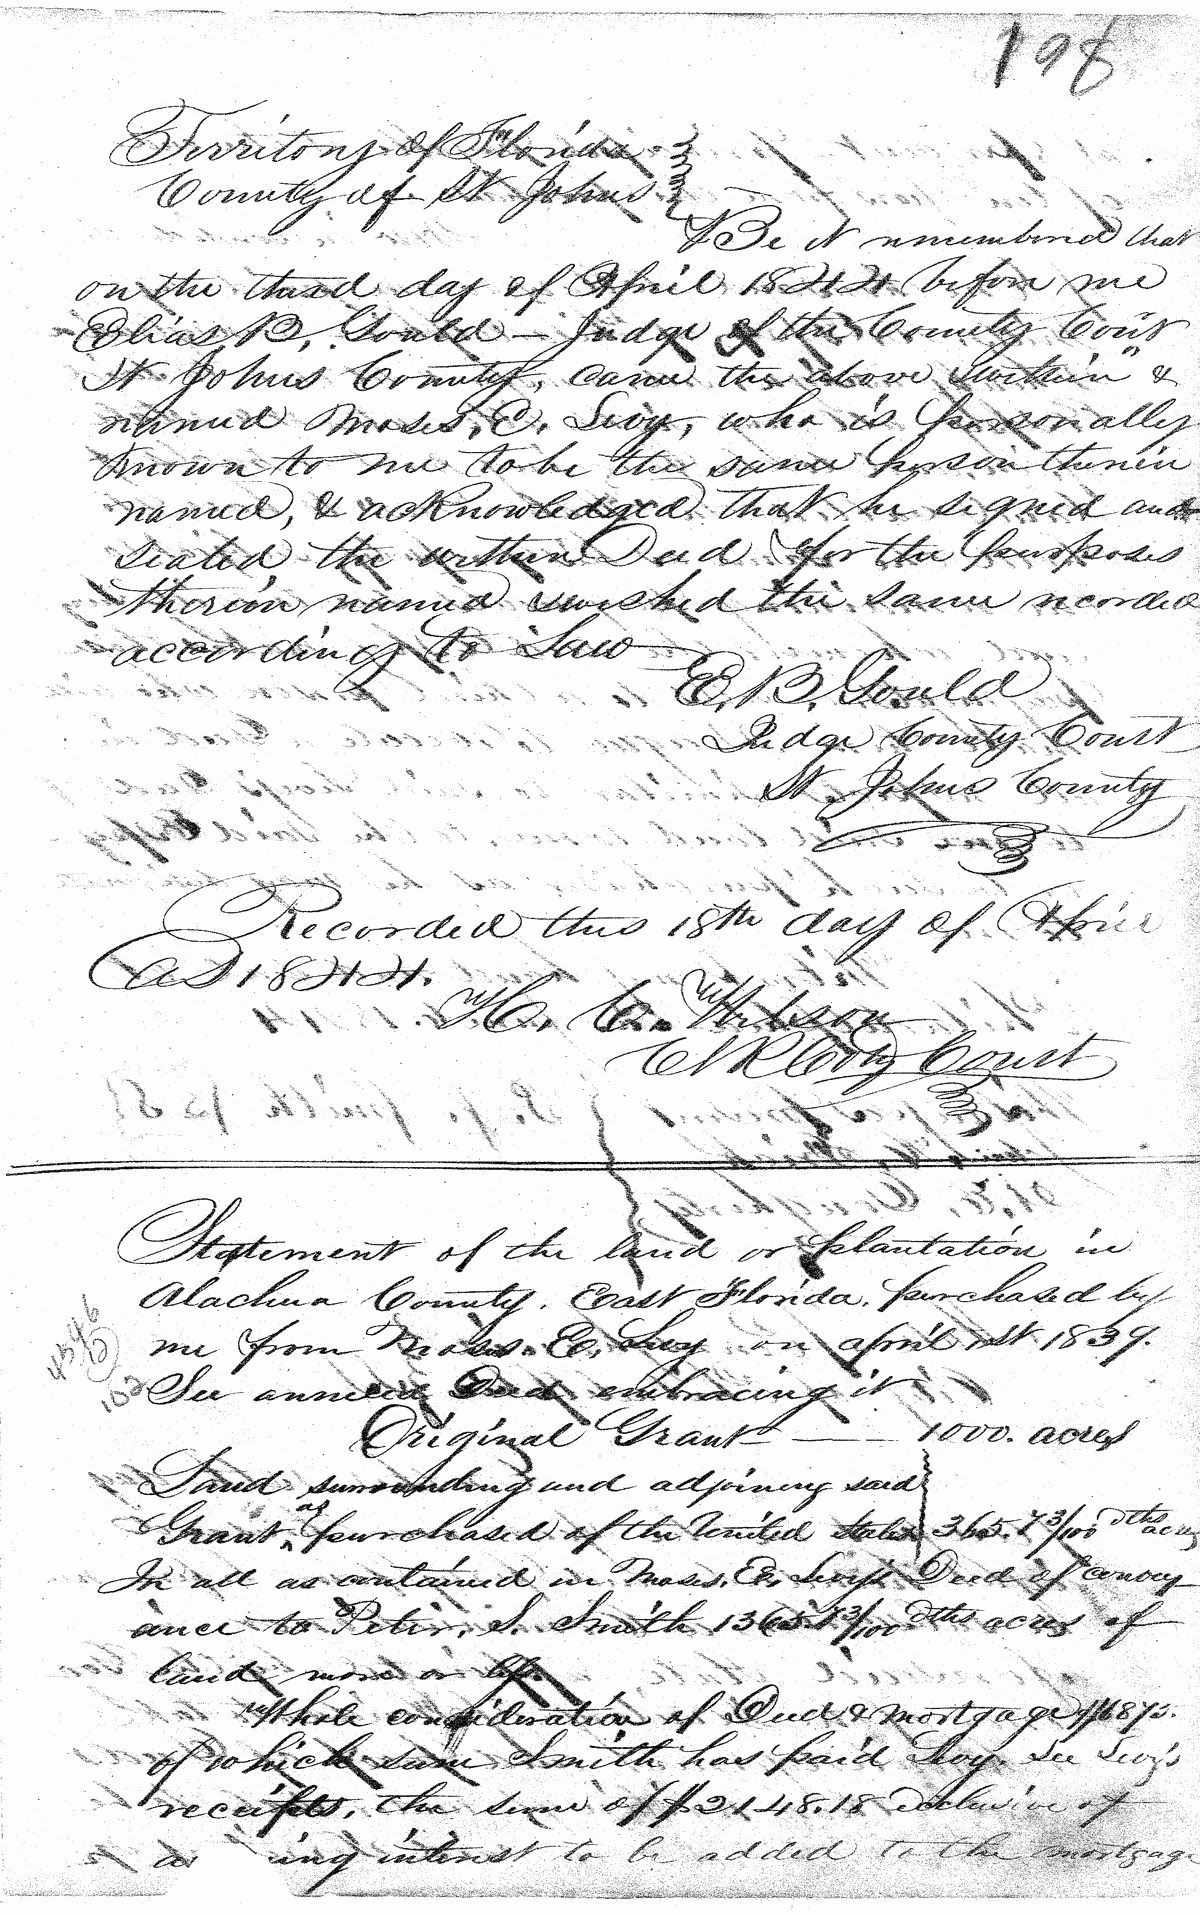 198
Territory of Florida
County of St Johns
Be it remembered that
on the third day of April 1844 before me
Elias B. Gould – Judge of the County Cout
St Johns County, came the above "within" &
named Moses, E. Levy, who is personally
known to me to be the same person therein
named, & acknowledged that he signed and
sealed the within Deed for the purposes
therein named & wished the same recorded
according to Law
E. B. Gould
Judge County Court
St. Johns County
Recorded this 18th day of April
AD 1844.
H. C. Wilson
Clk Coty Court
Statement of the land or plantation in
Alachua County, East Florida, purchased by
me from Moses. E. Levy on april 1st 1839.
See annexed Deed embracing it
Original Grant — 1000. acres
Land surrounding and adjoining said
Grant, as purchased of the United States 365.73/100 dths acres
In all as contained in Moses. E. Levy's Deed of convey
ance to Peter. S. Smith 1365.73/100 dths acres of
land more or less.
Whole consideration of Deed & mortgage
of which sum Smith has paid Levy. See Levy's
receipts, the sum of $2148.18 exclusive of
interest to be added to the mortgage